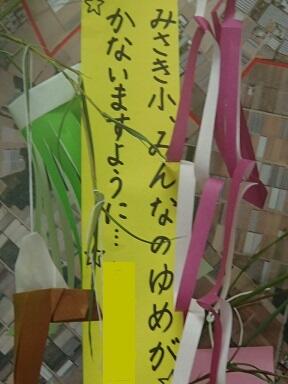 みさき小、みんなのゆめが☆
☆かないますように…☆